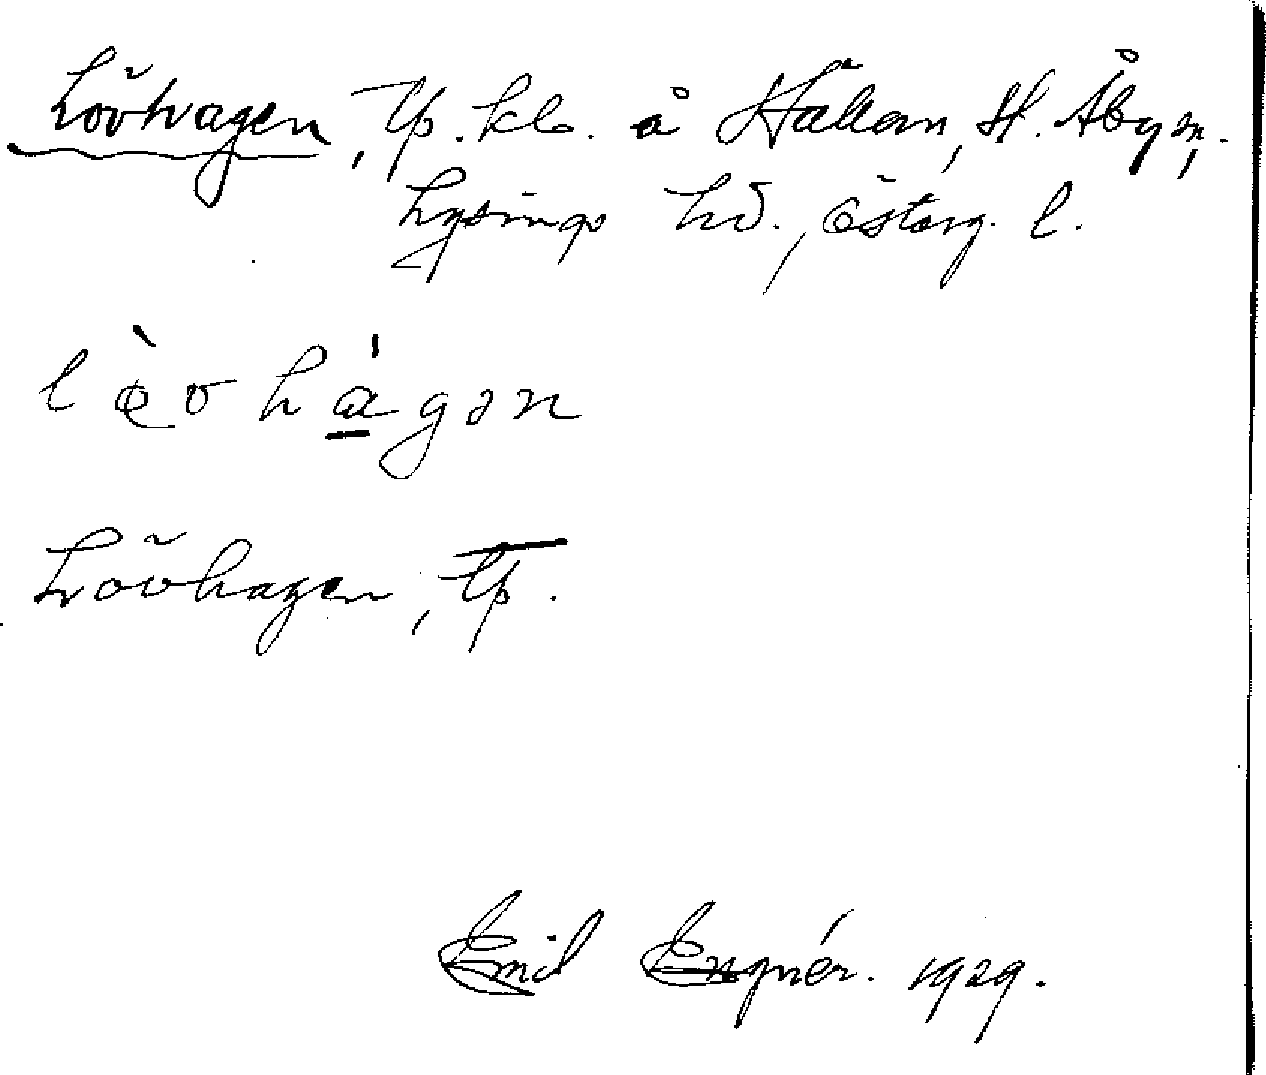 Lövhagen, Tp. kl. å Hållan, St. Åby sn.
Lysings hd., Österg. l.
lèvhágən
Lövhagen, Tp.
Emil Engnér. 1929.